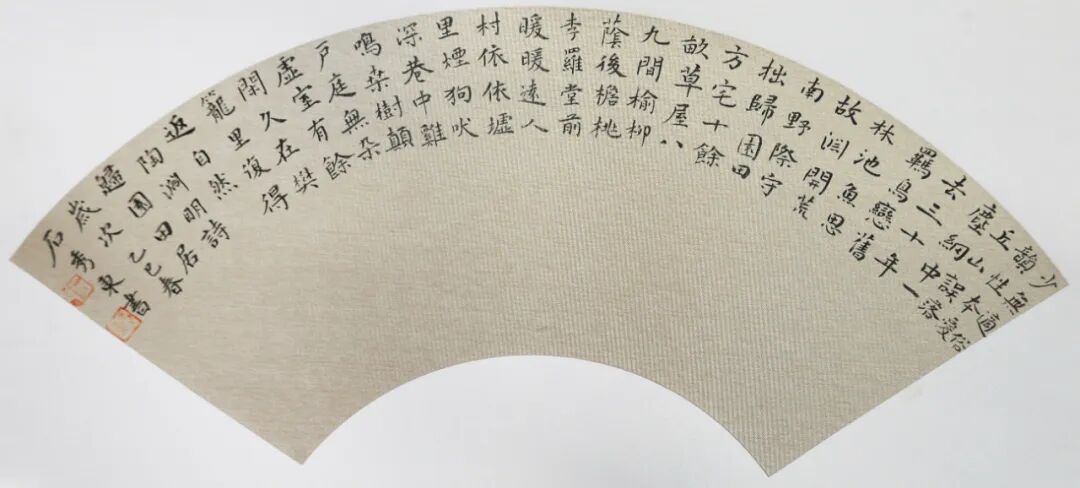 少無適俗
韻性本愛
丘山誤落
塵網中一
去三十年
羈鳥戀舊
林池魚思
故淵開荒
南野際守
拙歸園田
方宅十餘
畝草屋八
九間榆柳
蔭後檐桃
李羅堂前
暖暖遠人
村依依墟
里煙狗吠
深巷中雞
鳴桒樹顛
戶庭無杂
虛室有餘
閑久在樊
籠里復得
返自然
陶淵明詩
歸園田居
歲次乙巳春
石秀東書